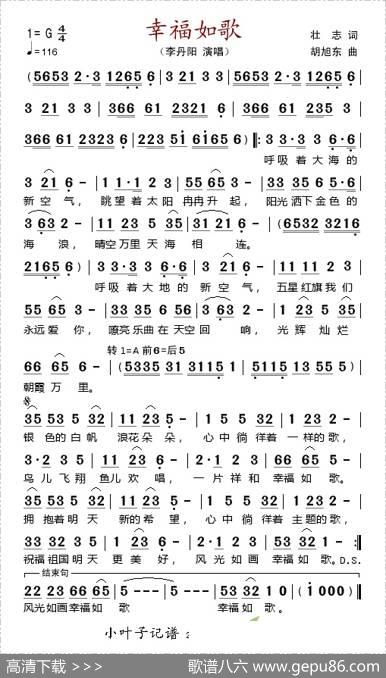 1= G 4/4 幸福如歌 壮 志 词
♩=116 （李丹阳 演唱） 胡旭东 曲
(5653 2·3 1265 6 | 5653 2·3 1265 6 |
3 21 6 - | 366 61 2321 3 | 366 61 3 21 3 |
366 61 2323 6 | 223 51 6165 6) ‖: 3 3·3 3 6·6 |
呼吸 着大海 的
3 21 6 - | 1 1 1·2 3 | 55 65 3 - | 33 35 6 5·6 |
新 空 气， 眺望 着太阳 冉冉升 起， 阳光洒下 金色的
3 63 2 - | 11 23 5 35 | 31 21 6 - | (6532 3216
海 浪， 晴空万里 天海 相 连。
2165 6) | 3 3·3 3 6·6 | 3 21 6 - | 11 11 2 3 |
呼吸 着大地 的 新 空 气， 五星红旗 我们
55 65 3 - | 33 35 6 56 | 3 63 2 - | 11 23 5 5 |
永远爱 你， 嘹亮乐曲 在天空 回 响， 光辉 灿烂
转 1=A 前6=后5
66 65 6 - | (5335 31 3115 1 | 5115 13 55 5) |
朝霞 万 里。
35 53 5 32 | 11 23 5 - | 1 5 5 32 | 1 23 2 - |
银 色的 白 帆 浪花 朵 朵， 心 中 徜 徉着 一 样的 歌，
3·2 3 5 | 11 23 5 - | 1·2 3 23 | 66 65 5 - |
鸟 儿 飞 翔 鱼儿 欢 唱， 一 片 祥 和 幸福 如 歌。
35 53 5 32 | 11 23 5 - | 1 5 5 32 | 1 23 2 - |
拥 抱着 明天 新的 希 望， 心 中 徜 徉着 主 题的 歌，
33 32 3 5 | 11 23 6 - | 2·1 2 3 | 53 32 1 - :‖
祝福 祖国 明 天 更 美 好， 风 光 如 画 幸福 如 歌。D.S.
结束句
22 23 66 65 | 5 - - - | 53 32 1 0 | (i 000) ‖
风光 如画 幸福 如 歌 幸福 如 歌 。
小叶子记谱
高清下载 >>> 歌谱八六 www.gepu86.com